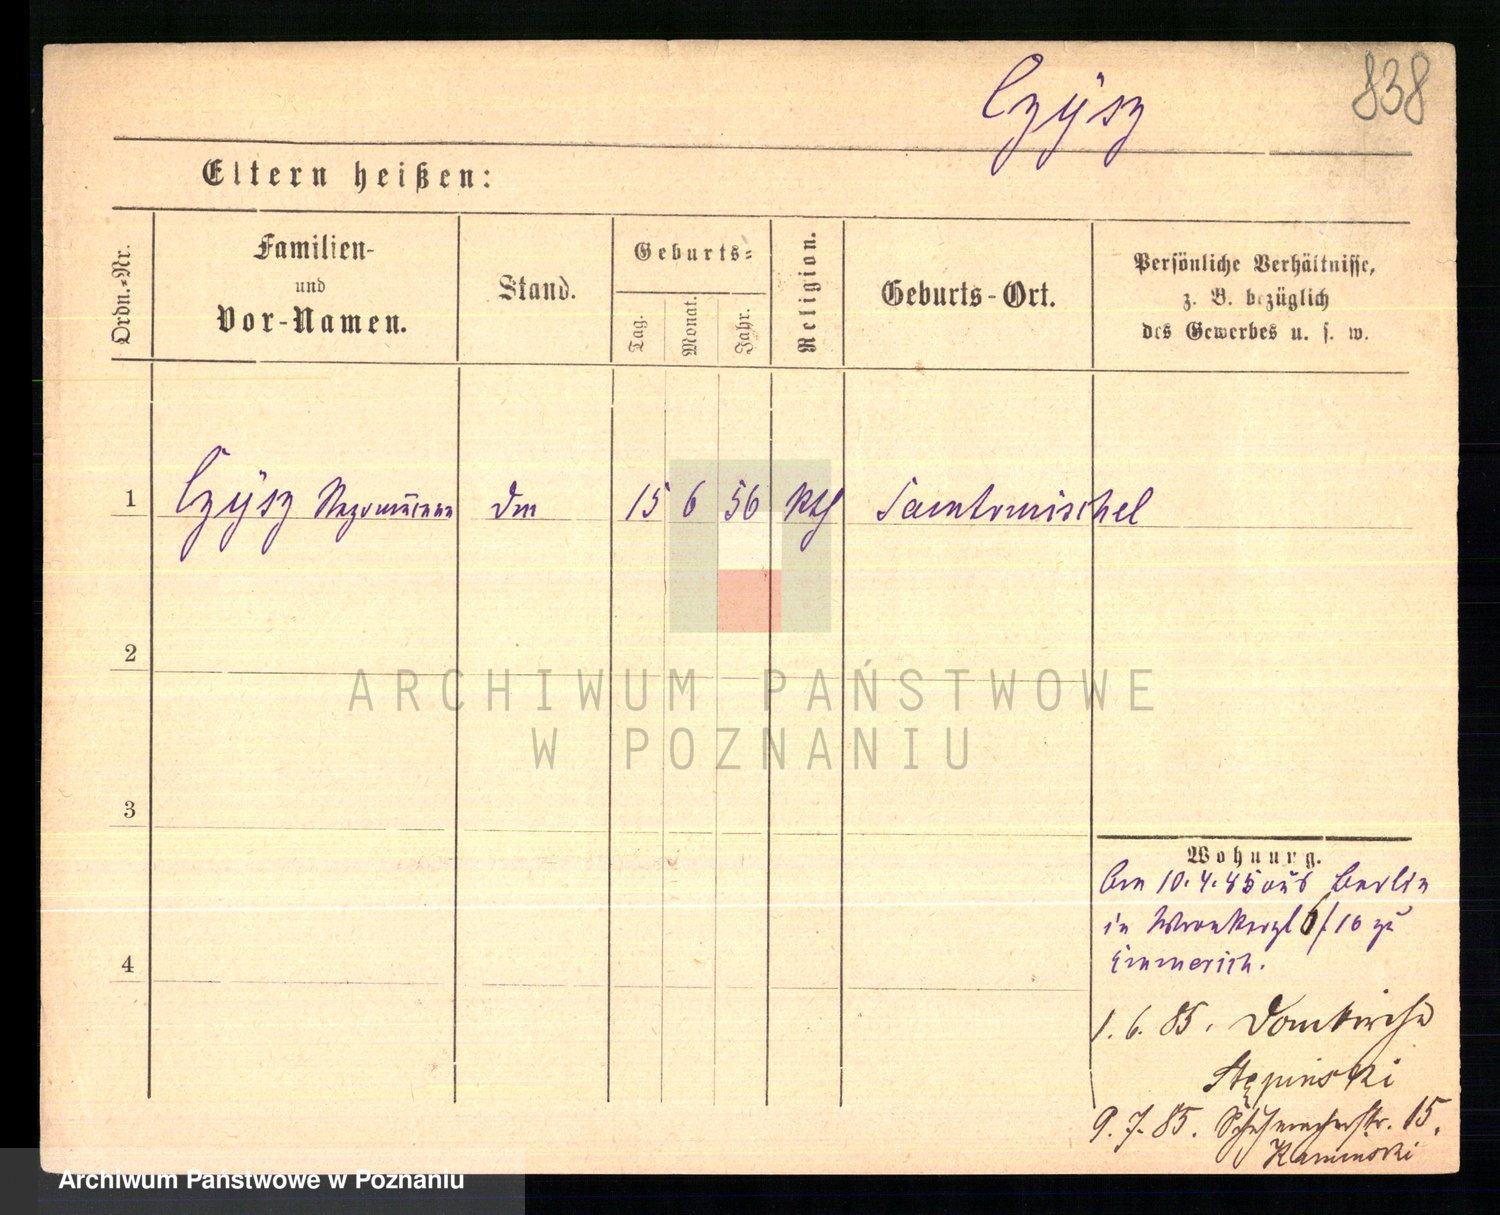 Czÿsz
838
Eltern heißen:
Ordn.-Nr.
Familien-
und
Vor-Namen.
Stand.
Geburts-
Tag.
Monat.
Jahr.
Religion.
Geburts-Ort.
Persönliche Verhältnisse,
z. B. bezüglich
des Gewerbes u. s. w.
1 Czÿsz 15 6 56 kth
2
3
4
Wohnung.
Am 10.4.85 aus Berlin
in 6/. 10 zu
Emmerich.
1.6.85. Domkirche
Stępinski
9.7.85. Schuhmacherstr. 15.
Kaminski
ARCHIWUM PAŃSTWOWE
W POZNANIU
Archiwum Państwowe w Poznaniu